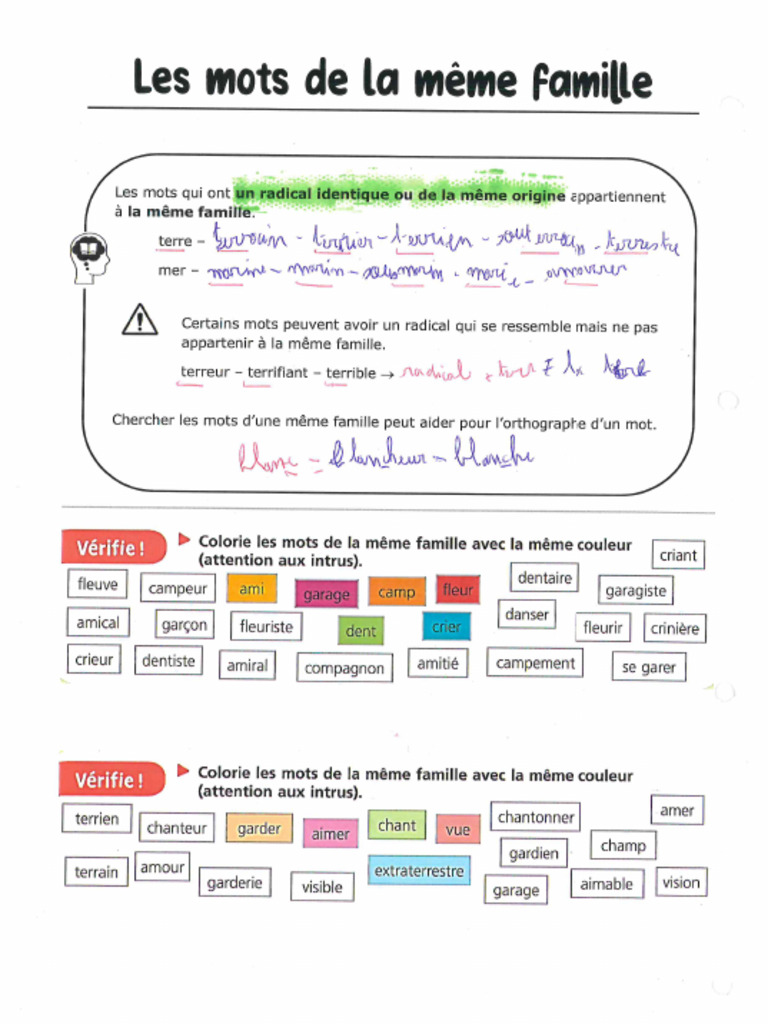 Les mots de la même famille
Les mots qui ont un radical identique ou de la même origine appartiennent
à la même famille.
terre – terrain - terrier - terrien - souterrain - terrestre
mer – marine - marin - sous marin - - amarrer
Certains mots peuvent avoir un radical qui se ressemble mais ne pas
appartenir à la même famille.
terreur – terrifiant – terrible → radical
Chercher les mots d'une même famille peut aider pour l'orthographe d'un mot.
blanc - blancheur - blanche
Vérifie ! Colorie les mots de la même famille avec la même couleur
(attention aux intrus).
criant
fleuve campeur ami garage camp fleur dentaire garagiste
amical garçon fleuriste dent crier danser fleurir crinière
crieur dentiste amiral compagnon amitié campement se garer
Vérifie ! Colorie les mots de la même famille avec la même couleur
(attention aux intrus).
terrien chanteur garder aimer chant vue chantonner amer
gardien champ
terrain amour garderie visible extraterrestre garage aimable vision